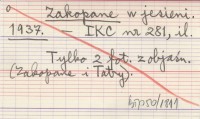 Zakopane w jesieni.
1937. — IKC nr 281, il.
Tylko 2 fot. z objaśn.
(Zakopane i Tatry).